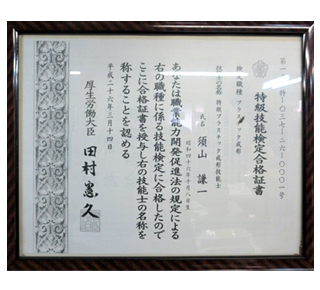 特級技能検定合格証書
検定職種 プラスチック成形
技能士の名称 特級プラスチック成形技能士
氏名 須山 謙一
昭和四十六年十月八日生
あなたは職業能力開発促進法の規定による
右の職種に係る技能検定に合格したので
ここに合格証書を授与し右の技能士の名称を
称することを認める
平成二十六年三月十四日
厚生労働大臣 田村憲久